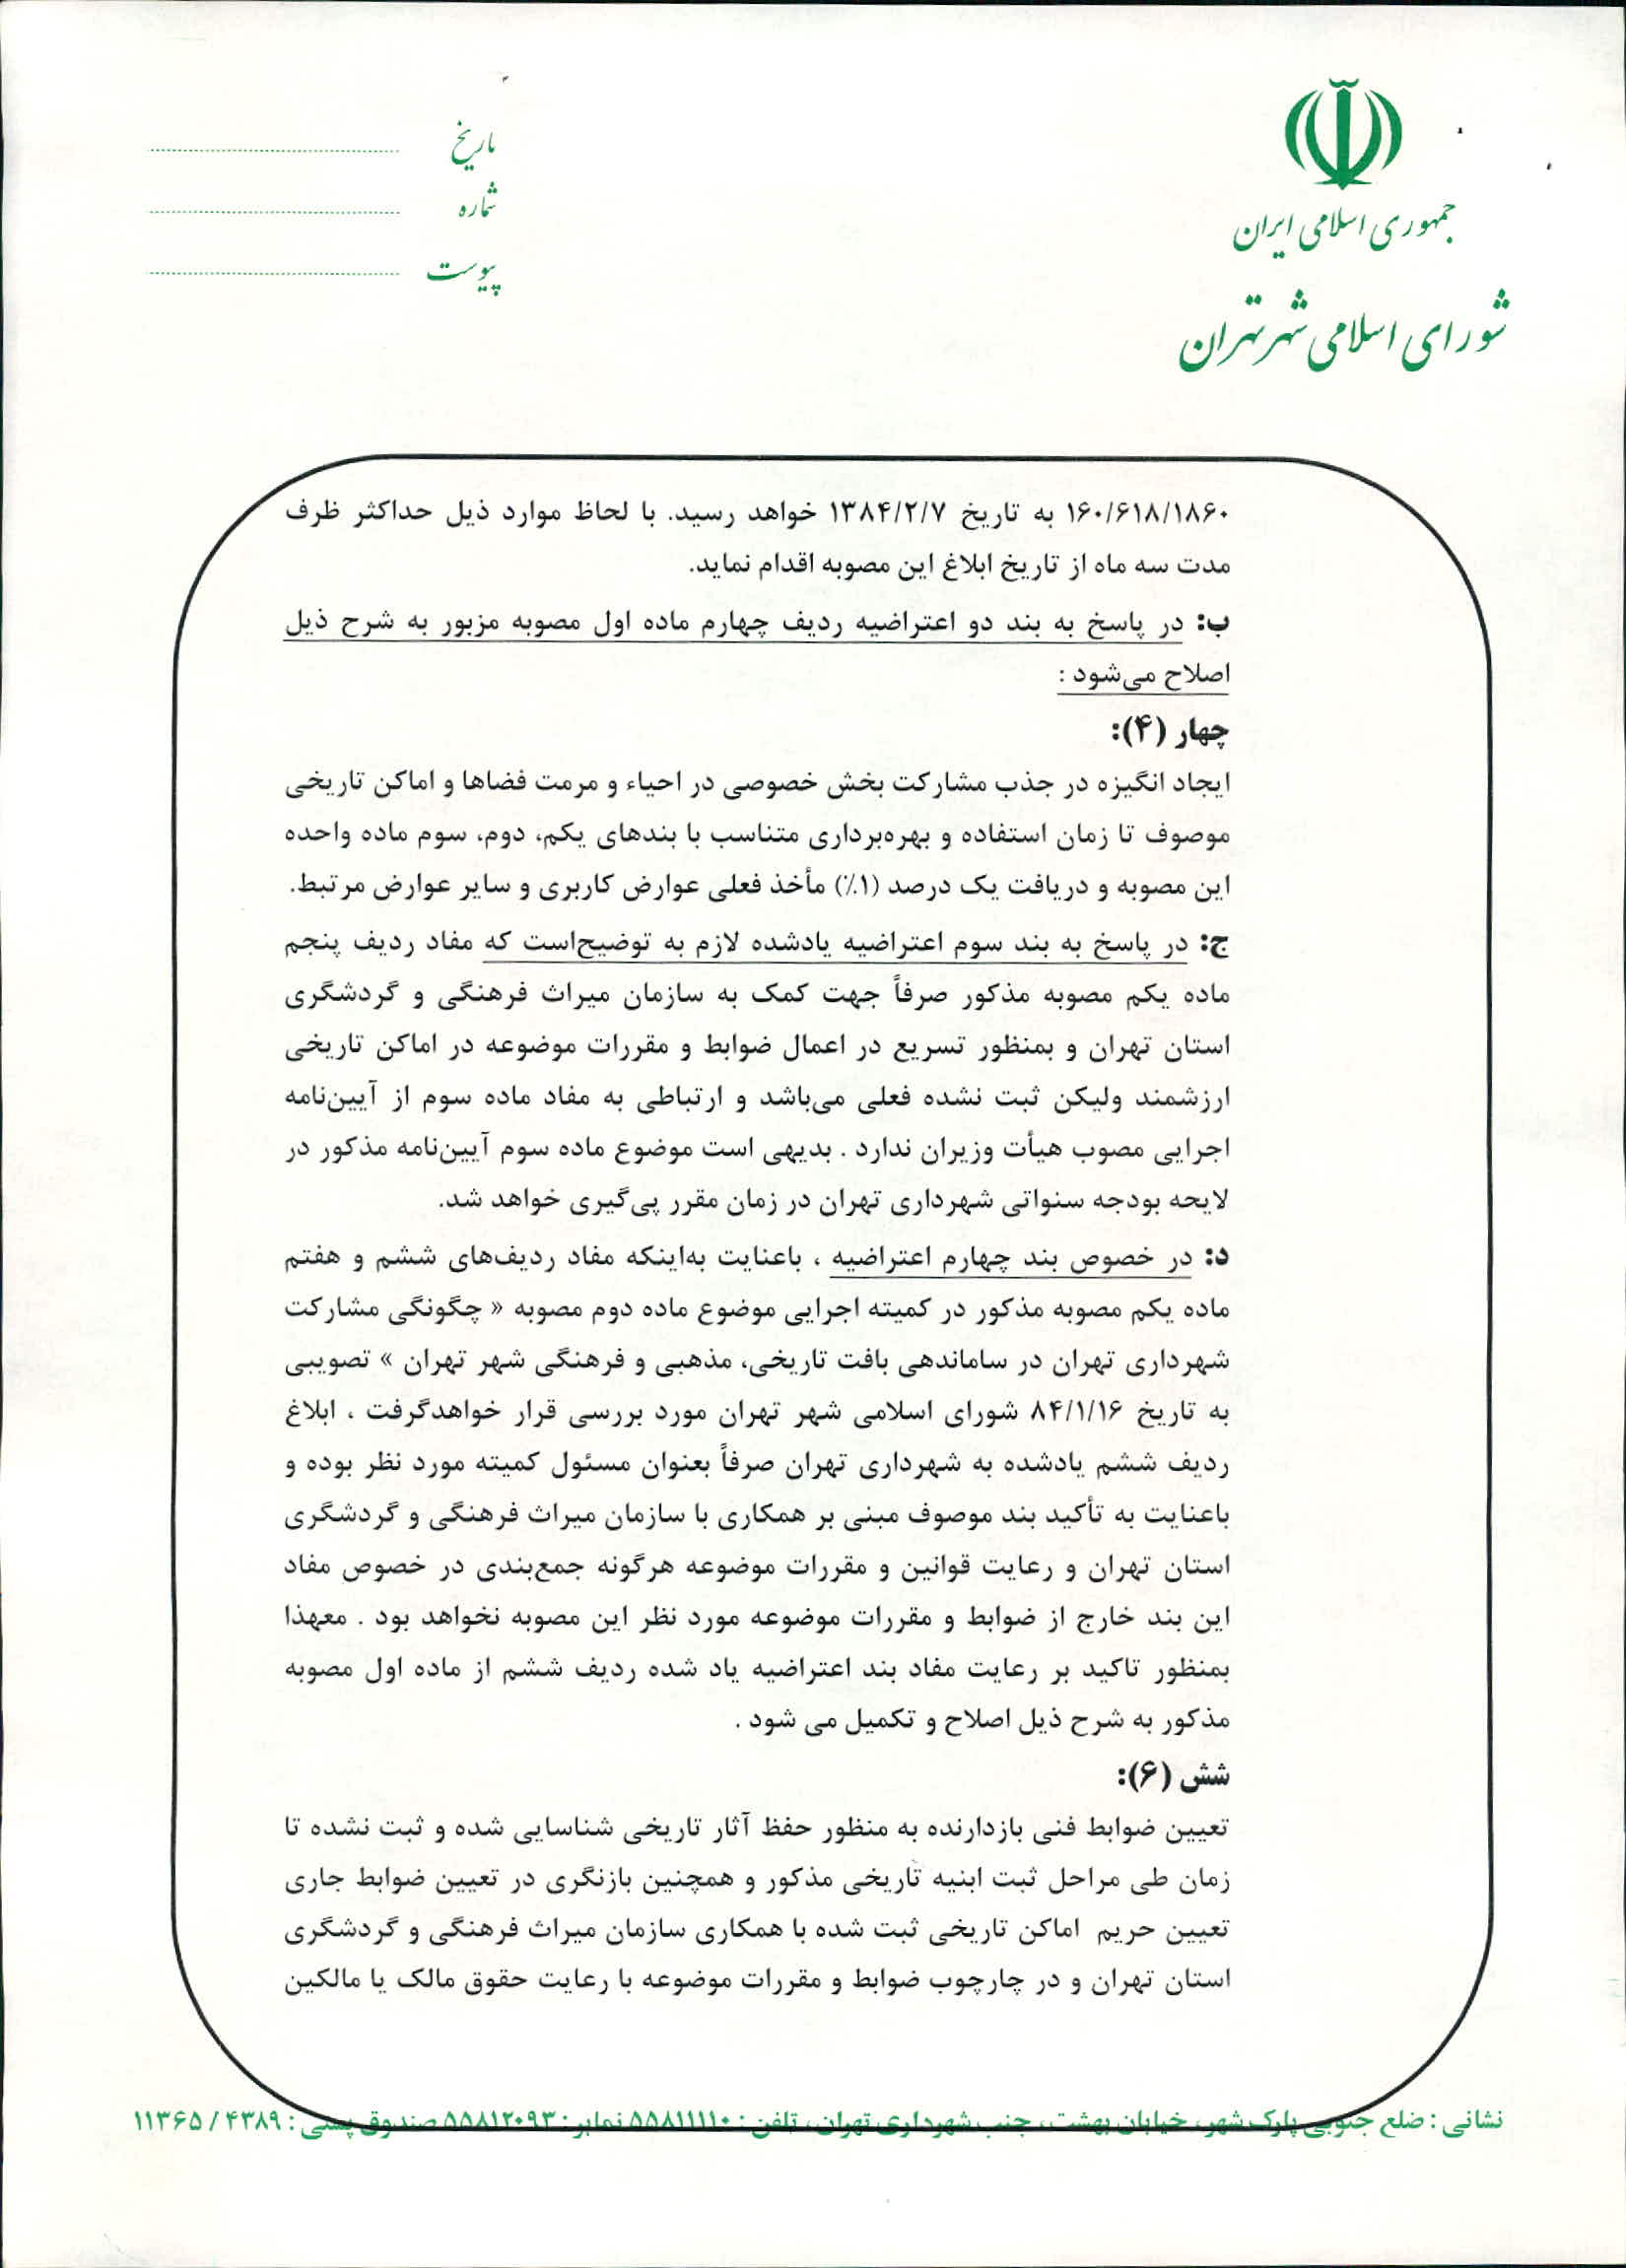 جمهوری اسلامی ایران
شورای اسلامی شهر تهران
تاریخ
شماره
پیوست
۱۶۰/۶۱۸/۱۸۶۰ به تاریخ ۱۳۸۴/۲/۷ خواهد رسید. با لحاظ موارد ذیل حداکثر ظرف
مدت سه ماه از تاریخ ابلاغ این مصوبه اقدام نماید.
ب: در پاسخ به بند دو اعتراضیه ردیف چهارم ماده اول مصوبه مزبور به شرح ذیل
اصلاح می‌شود :
چهار (۴):
ایجاد انگیزه در جذب مشارکت بخش خصوصی در احیاء و مرمت فضاها و اماکن تاریخی
موصوف تا زمان استفاده و بهره‌برداری متناسب با بندهای یکم، دوم، سوم ماده واحده
این مصوبه و دریافت یک درصد (۱٪) مأخذ فعلی عوارض کاربری و سایر عوارض مرتبط.
ج: در پاسخ به بند سوم اعتراضیه یادشده لازم به توضیح‌است که مفاد ردیف پنجم
ماده یکم مصوبه مذکور صرفاً جهت کمک به سازمان میراث فرهنگی و گردشگری
استان تهران و بمنظور تسریع در اعمال ضوابط و مقررات موضوعه در اماکن تاریخی
ارزشمند ولیکن ثبت نشده فعلی می‌باشد و ارتباطی به مفاد ماده سوم از آیین‌نامه
اجرایی مصوب هیأت وزیران ندارد . بدیهی است موضوع ماده سوم آیین‌نامه مذکور در
لایحه بودجه سنواتی شهرداری تهران در زمان مقرر پی‌گیری خواهد شد.
د: در خصوص بند چهارم اعتراضیه ، باعنایت به‌اینکه مفاد ردیف‌های ششم و هفتم
ماده یکم مصوبه مذکور در کمیته اجرایی موضوع ماده دوم مصوبه « چگونگی مشارکت
شهرداری تهران در ساماندهی بافت تاریخی، مذهبی و فرهنگی شهر تهران » تصویبی
به تاریخ ۸۴/۱/۱۶ شورای اسلامی شهر تهران مورد بررسی قرار خواهدگرفت ، ابلاغ
ردیف ششم یادشده به شهرداری تهران صرفاً بعنوان مسئول کمیته مورد نظر بوده و
باعنایت به تأکید بند موصوف مبنی بر همکاری با سازمان میراث فرهنگی و گردشگری
استان تهران و رعایت قوانین و مقررات موضوعه هرگونه جمع‌بندی در خصوص مفاد
این بند خارج از ضوابط و مقررات موضوعه مورد نظر این مصوبه نخواهد بود . معهذا
بمنظور تاکید بر رعایت مفاد بند اعتراضیه یاد شده ردیف ششم از ماده اول مصوبه
مذکور به شرح ذیل اصلاح و تکمیل می شود .
شش (۶):
تعیین ضوابط فنی بازدارنده به منظور حفظ آثار تاریخی شناسایی شده و ثبت نشده تا
زمان طی مراحل ثبت ابنیه تاریخی مذکور و همچنین بازنگری در تعیین ضوابط جاری
تعیین حریم اماکن تاریخی ثبت شده با همکاری سازمان میراث فرهنگی و گردشگری
استان تهران و در چارچوب ضوابط و مقررات موضوعه با رعایت حقوق مالک یا مالکین
نشانی : ضلع جنوبی پارک شهر، خیابان بهشت ، جنب شهرداری تهران، تلفن : ۵۵۸۱۱۱۱۰ نمابر : ۵۵۸۱۲۰۹۳ صندوق پستی : ۴۳۸۹ / ۱۱۳۶۵